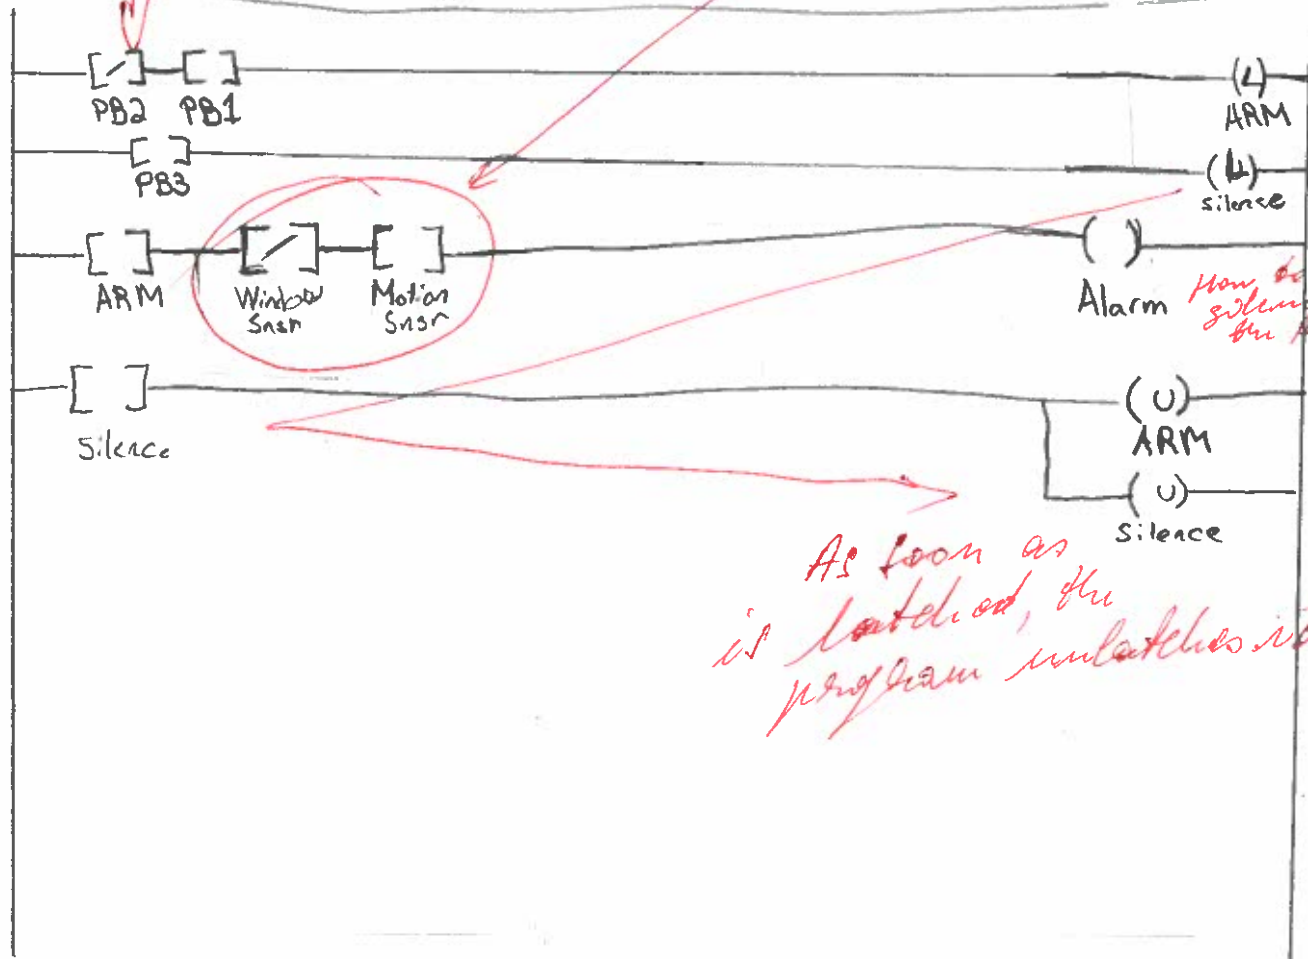 PB2 PB1
(L)
ARM
PB3
(L)
silence
ARM
Window
Snsr
Motion
Snsr
Alarm
How to
the
Silence
(U)
ARM
(U)
Silence
As soon as
is latched, the
program unlatches it